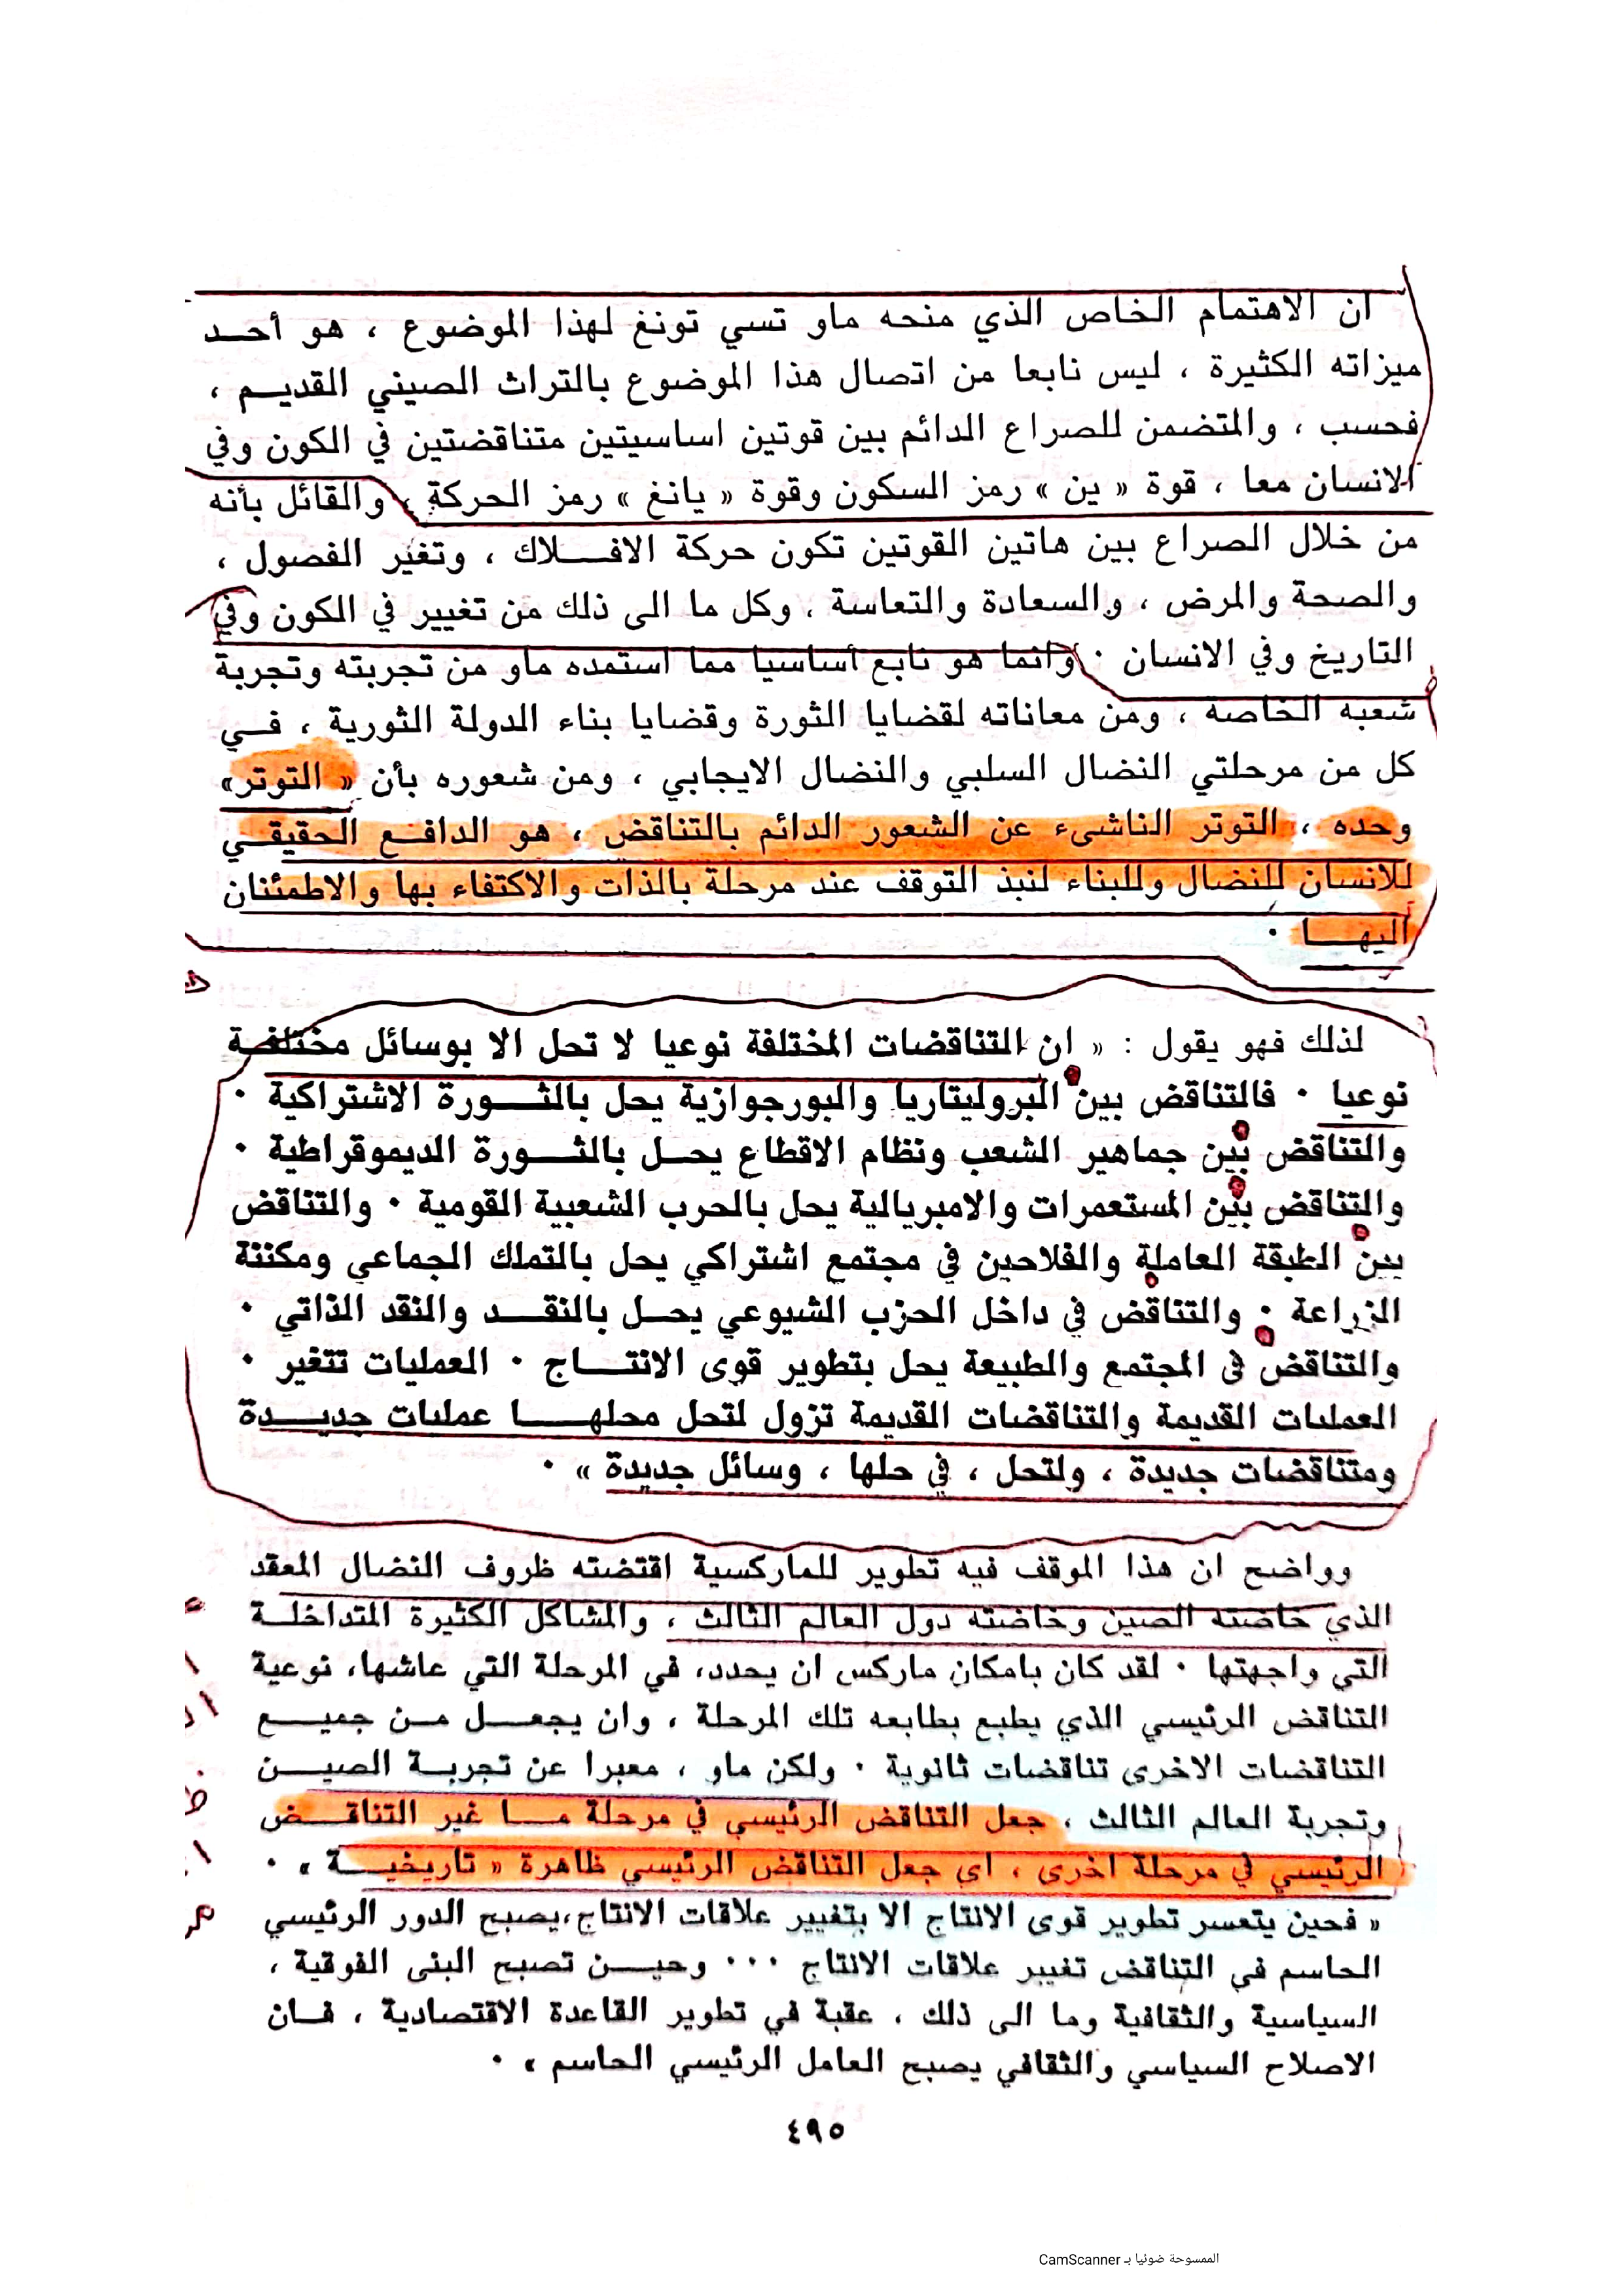 ان الاهتمام الخاص الذي منحه ماو تسي تونغ لهذا الموضوع ، هو أحد
ميزاته الكثيرة ، ليس نابعا من اتصال هذا الموضوع بالتراث الصيني القديم ،
فحسب ، والمتضمن للصراع الدائم بين قوتين اساسيتين متناقضتين في الكون وفي
الانسان معا ، قوة « ين » رمز السكون وقوة « يانغ » رمز الحركة ، والقائل بأنه
من خلال الصراع بين هاتين القوتين تكون حركة الافلاك ، وتغير الفصول ،
والصحة والمرض ، والسعادة والتعاسة ، وكل ما الى ذلك من تغيير في الكون وفي
التاريخ وفي الانسان . وانما هو نابع أساسيا مما استمده ماو من تجربته وتجربة
شعبه الخاصة ، ومن معاناته لقضايا الثورة وقضايا بناء الدولة الثورية ، في
كل من مرحلتي النضال السلبي والنضال الايجابي ، ومن شعوره بأن « التوتر»
وحده ، التوتر الناشىء عن الشعور الدائم بالتناقض ، هو الدافع الحقيقي
للانسان للنضال وللبناء لنبذ التوقف عند مرحلة بالذات والاكتفاء بها والاطمئنان
اليها .
لذلك فهو يقول : « ان التناقضات المختلفة نوعيا لا تحل الا بوسائل مختلفة
نوعيا . فالتناقض بين البروليتاريا والبورجوازية يحل بالثورة الاشتراكية .
والتناقض بين جماهير الشعب ونظام الاقطاع يحل بالثورة الديموقراطية .
والتناقض بين المستعمرات والامبريالية يحل بالحرب الشعبية القومية . والتناقض
بين الطبقة العاملة والفلاحين في مجتمع اشتراكي يحل بالتملك الجماعي ومكننة
الزراعة . والتناقض في داخل الحزب الشيوعي يحل بالنقد والنقد الذاتي .
والتناقض في المجتمع والطبيعة يحل بتطوير قوى الانتاج . العمليات تتغير .
العمليات القديمة والتناقضات القديمة تزول لتحل محلها عمليات جديدة
ومتناقضات جديدة ، ولتحل ، في حلها ، وسائل جديدة » .
وواضح ان هذا الموقف فيه تطوير للماركسية اقتضته ظروف النضال المعقد
الذي خاضته الصين وخاضته دول العالم الثالث ، والمشاكل الكثيرة المتداخلة
التي واجهتها . لقد كان بامكان ماركس ان يحدد، في المرحلة التي عاشها، نوعية
التناقض الرئيسي الذي يطبع بطابعه تلك المرحلة ، وان يجعل من جميع
التناقضات الاخرى تناقضات ثانوية . ولكن ماو ، معبرا عن تجربة الصين
وتجربة العالم الثالث ، جعل التناقض الرئيسي في مرحلة ما غير التناقض
الرئيسي في مرحلة اخرى ، اي جعل التناقض الرئيسي ظاهرة « تاريخية » .
« فحين يتعسر تطوير قوى الانتاج الا بتغيير علاقات الانتاج،يصبح الدور الرئيسي
الحاسم في التناقض تغيير علاقات الانتاج ... وحين تصبح البنى الفوقية ،
السياسية والثقافية وما الى ذلك ، عقبة في تطوير القاعدة الاقتصادية ، فان
الاصلاح السياسي والثقافي يصبح العامل الرئيسي الحاسم » .
٤٩٥
الممسوحة ضوئيا بـ CamScanner